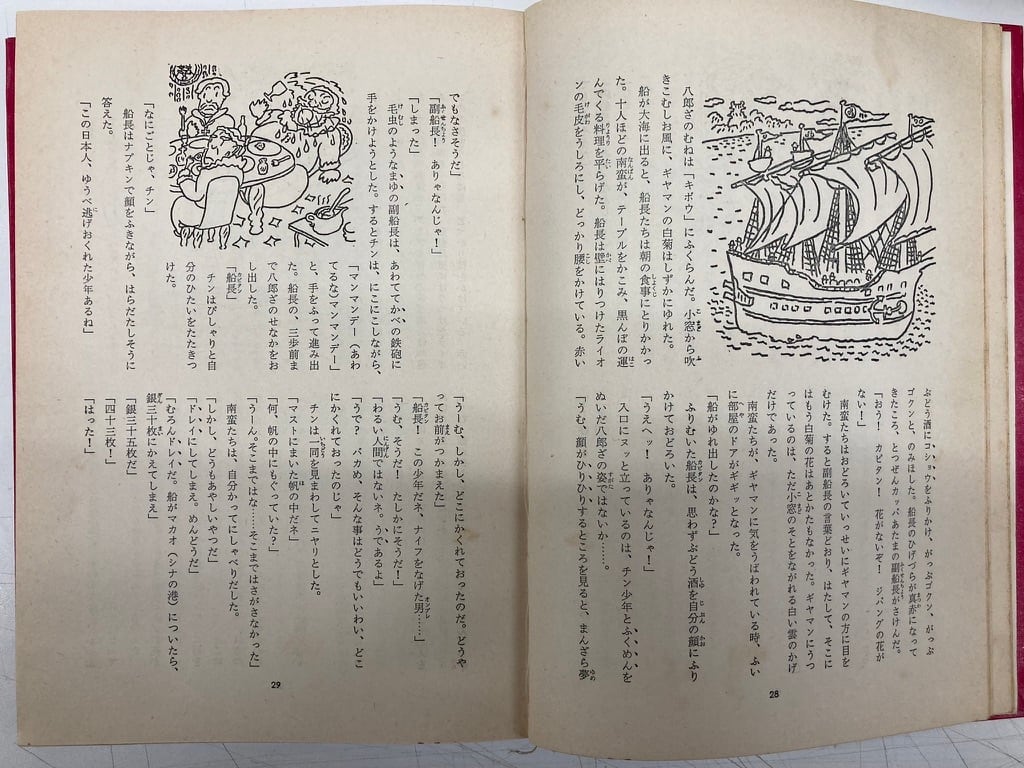 八郎ざのむねは「キボウ」にふくらんだ。小窓から吹
きこむしお風に、ギヤマンの白菊はしずかにゆれた。
船が大海に出ると、船長たちは朝の食事にとりかかっ
た。十人ほどの南蛮が、テーブルをかこみ、黒んぼの運
んでくる料理を平らげた。船長は壁にはりつけたライオ
ンの毛皮をうしろにし、どっかり腰をかけている。赤い
ぶどう酒にコショウをふりかけ、がっぷゴクン、がっぷ
ゴクンと、のみほした。船長のひげづらが真赤になって
きたころ、とつぜんカッパあたまの副船長がさけんだ。
「おう！　カピタン！　花がないぞ！　ジパングの花が
ない！」
南蛮たちはおどろいていっせいにギヤマンの方に目を
むけた。すると副船長の言葉どおり、はたして、そこに
はもう白菊の花はあとかたもなかった。ギヤマンにうつ
っているのは、ただ小窓のそとをながれる白い雲のかげ
だけであった。
南蛮たちが、ギヤマンに気をうばわれている時、ふい
に部屋のドアがギギッとなった。
「船がゆれ出したのかな？」
ふりむいた船長は、思わずぶどう酒を自分の顔にふり
かけておどろいた。
「うえヘッ！　ありゃなんじゃ！」
入口にヌッと立っているのは、チン少年とふくめんを
ぬいだ八郎ざの姿ではないか……。
「うむ、顔がひりひりするところを見ると、まんざら夢
28
でもなさそうだ」
「副船長！　ありゃなんじゃ！」
「しまった」
毛虫のようなまゆの副船長は、あわててかべの鉄砲に
手をかけようとした。するとチンは、にこにこしながら、
「マンマンデー（あわ
てるな）マンマンデー」
と、手をふって進み出
た。船長の、三歩前ま
で八郎ざのせなかをお
しはした。
「船長」
チンはぴしゃりと自
分のひたいをたたきつ
けた。
「なにごとじゃ、チン」
船長はナプキンで顔をふきながら、はらだたしそうに
答えた。
「この日本人、ゆうべ逃げおくれた少年あるね」
「うーむ、しかし、どこにかくれておったのだ。どうや
ってお前がつかまえた」
「船長！　この少年だネ、ナイフをなげた男……」
「うむ、そうだ！　たしかにそうだ！」
「わるい人間ではないネ。うであるよ」
「うで？　バカめ、そんな事はどうでもいいわい、どこ
にかくれておったのじゃ」
チンは一同を見まわしてニヤリとした。
「マストにまいた帆の中だネ」
「何、帆の中にもぐっていた？」
「うーん。そこまではな……そこまではさがさなかった」
南蛮たちは、自分かってにしゃべりだした。
「しかし、どうもあやしいやつだ」
「ドレイにしてしまえ。めんどうだ」
「むろんドレイだ。船がマカオ（シナの港）についたら、
銀三十枚にかえてしまえ」
「銀三十五枚だ」
「四十三枚！」
「はった！」
29